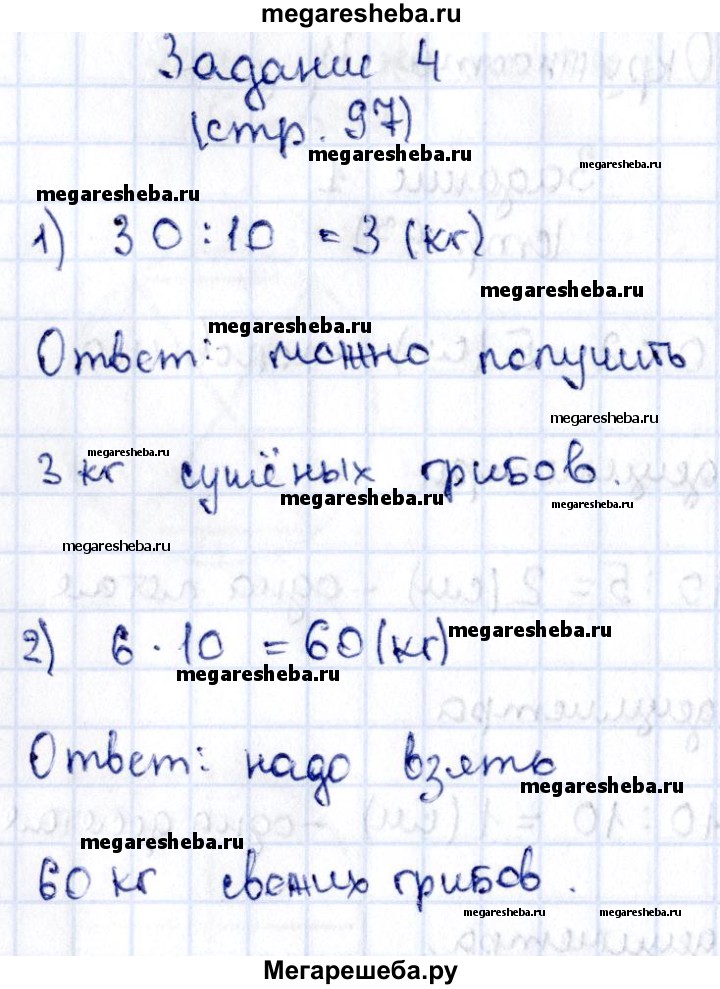 megaresheba.ru
Задание 4
(стр. 97)
megaresheba.ru
megaresheba.ru
megaresheba.ru
1) 30 : 10 = 3 (кг)
megaresheba.ru
megaresheba.ru
Ответ: можно получить
megaresheba.ru
megaresheba.ru
3 кг сушёных грибов.
megaresheba.ru
megaresheba.ru
megaresheba.ru
2) 6 · 10 = 60 (кг)
megaresheba.ru
megaresheba.ru
Ответ: надо взять
megaresheba.ru
megaresheba.ru
60 кг свежих грибов.
megaresheba.ru
megaresheba.ru
Мегарешеба.ру